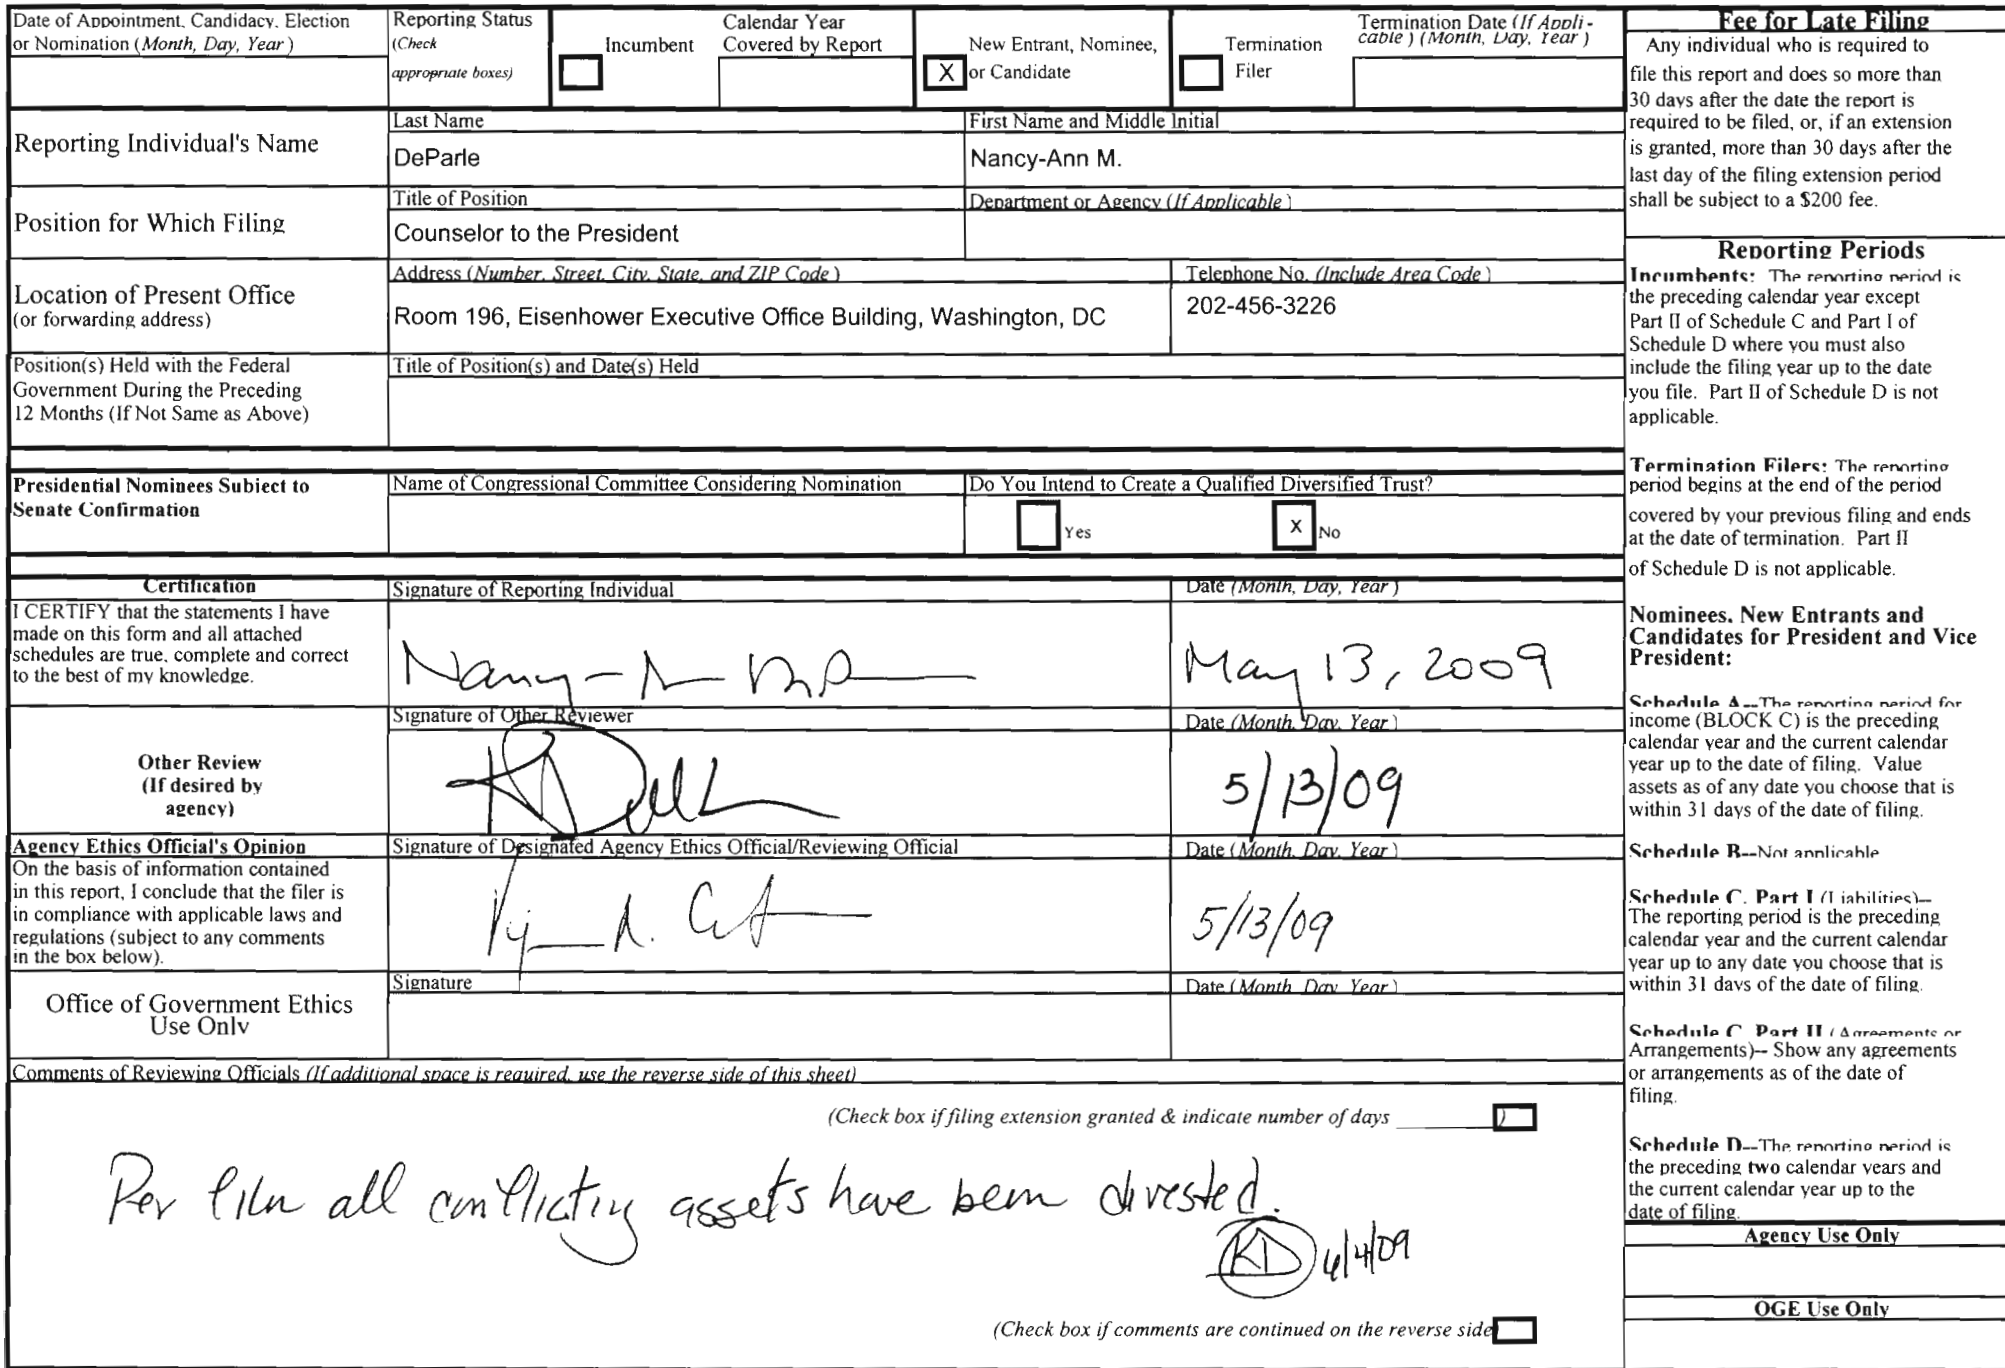 Date of Appointment, Candidacy, Election
or Nomination (Month, Day, Year)
Reporting Status
(Check
appropriate boxes)
Incumbent
Calendar Year
Covered by Report
X
New Entrant, Nominee,
or Candidate
Termination
Filer
Termination Date (If Appli-
cable) (Month, Day, Year)
Reporting Individual's Name
Last Name
DeParle
First Name and Middle Initial
Nancy-Ann M.
Position for Which Filing
Title of Position
Counselor to the President
Department or Agency (If Applicable)
Location of Present Office
(or forwarding address)
Address (Number, Street, City, State, and ZIP Code)
Room 196, Eisenhower Executive Office Building, Washington, DC
Telephone No. (Include Area Code)
202-456-3226
Position(s) Held with the Federal
Government During the Preceding
12 Months (If Not Same as Above)
Title of Position(s) and Date(s) Held
Presidential Nominees Subject to
Senate Confirmation
Name of Congressional Committee Considering Nomination
Do You Intend to Create a Qualified Diversified Trust?
Yes
X No
Certification
I CERTIFY that the statements I have
made on this form and all attached
schedules are true, complete and correct
to the best of my knowledge.
Signature of Reporting Individual
Date (Month, Day, Year)
May 13, 2009
Other Review
(If desired by
agency)
Signature of Other Reviewer
Date (Month, Day, Year)
5/13/09
Agency Ethics Official's Opinion
On the basis of information contained
in this report, I conclude that the filer is
in compliance with applicable laws and
regulations (subject to any comments
in the box below).
Signature of Designated Agency Ethics Official/Reviewing Official
Date (Month, Day, Year)
5/13/09
Office of Government Ethics
Use Only
Signature
Date (Month, Day, Year)
Comments of Reviewing Officials (If additional space is required, use the reverse side of this sheet)
(Check box if filing extension granted & indicate number of days ________)
Per filer all conflicting assets have been divested.
KD 6/4/09
(Check box if comments are continued on the reverse side
Fee for Late Filing
Any individual who is required to
file this report and does so more than
30 days after the date the report is
required to be filed, or, if an extension
is granted, more than 30 days after the
last day of the filing extension period
shall be subject to a $200 fee.
Reporting Periods
Incumbents: The reporting period is
the preceding calendar year except
Part II of Schedule C and Part I of
Schedule D where you must also
include the filing year up to the date
you file. Part II of Schedule D is not
applicable.
Termination Filers: The reporting
period begins at the end of the period
covered by your previous filing and ends
at the date of termination. Part II
of Schedule D is not applicable.
Nominees, New Entrants and
Candidates for President and Vice
President:
Schedule A--The reporting period for
income (BLOCK C) is the preceding
calendar year and the current calendar
year up to the date of filing. Value
assets as of any date you choose that is
within 31 days of the date of filing.
Schedule B--Not applicable
Schedule C, Part I (Liabilities)--
The reporting period is the preceding
calendar year and the current calendar
year up to any date you choose that is
within 31 days of the date of filing.
Schedule C, Part II (Agreements or
Arrangements)-- Show any agreements
or arrangements as of the date of
filing.
Schedule D--The reporting period is
the preceding two calendar years and
the current calendar year up to the
date of filing.
Agency Use Only
OGE Use Only